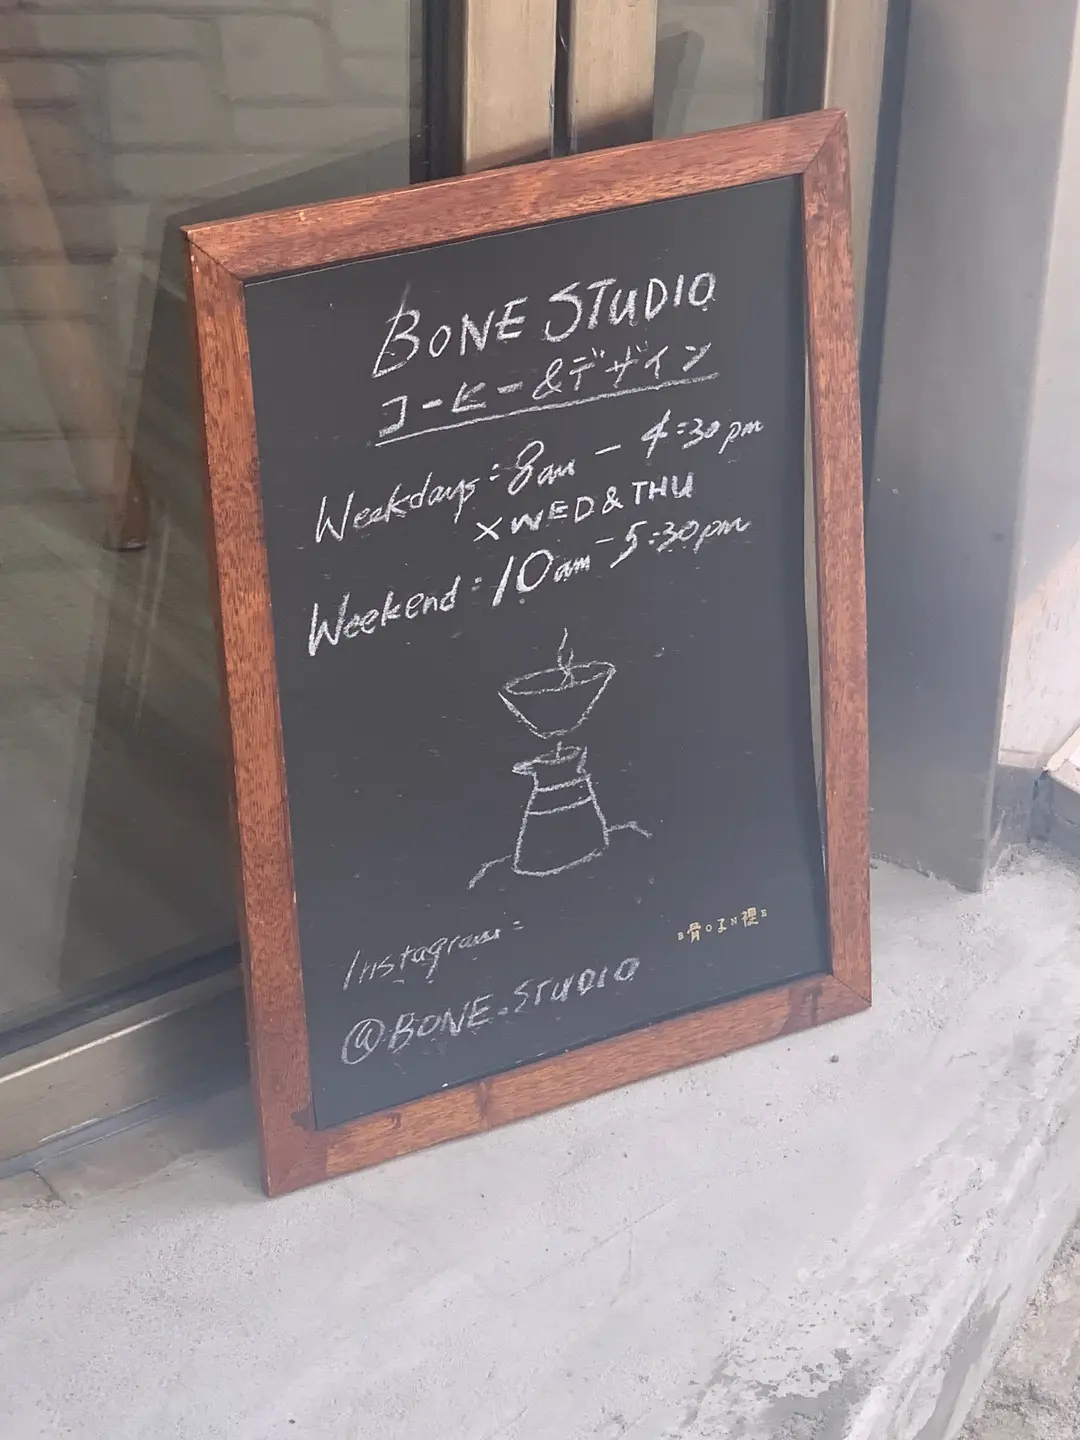 BONE STUDIO
コーヒー&デザイン
Weekdays: 8am - 4:30pm
X WED & THU
Weekend: 10am - 5:30pm
B骨O子N裡E
Instagram:
@BONE_STUDIO